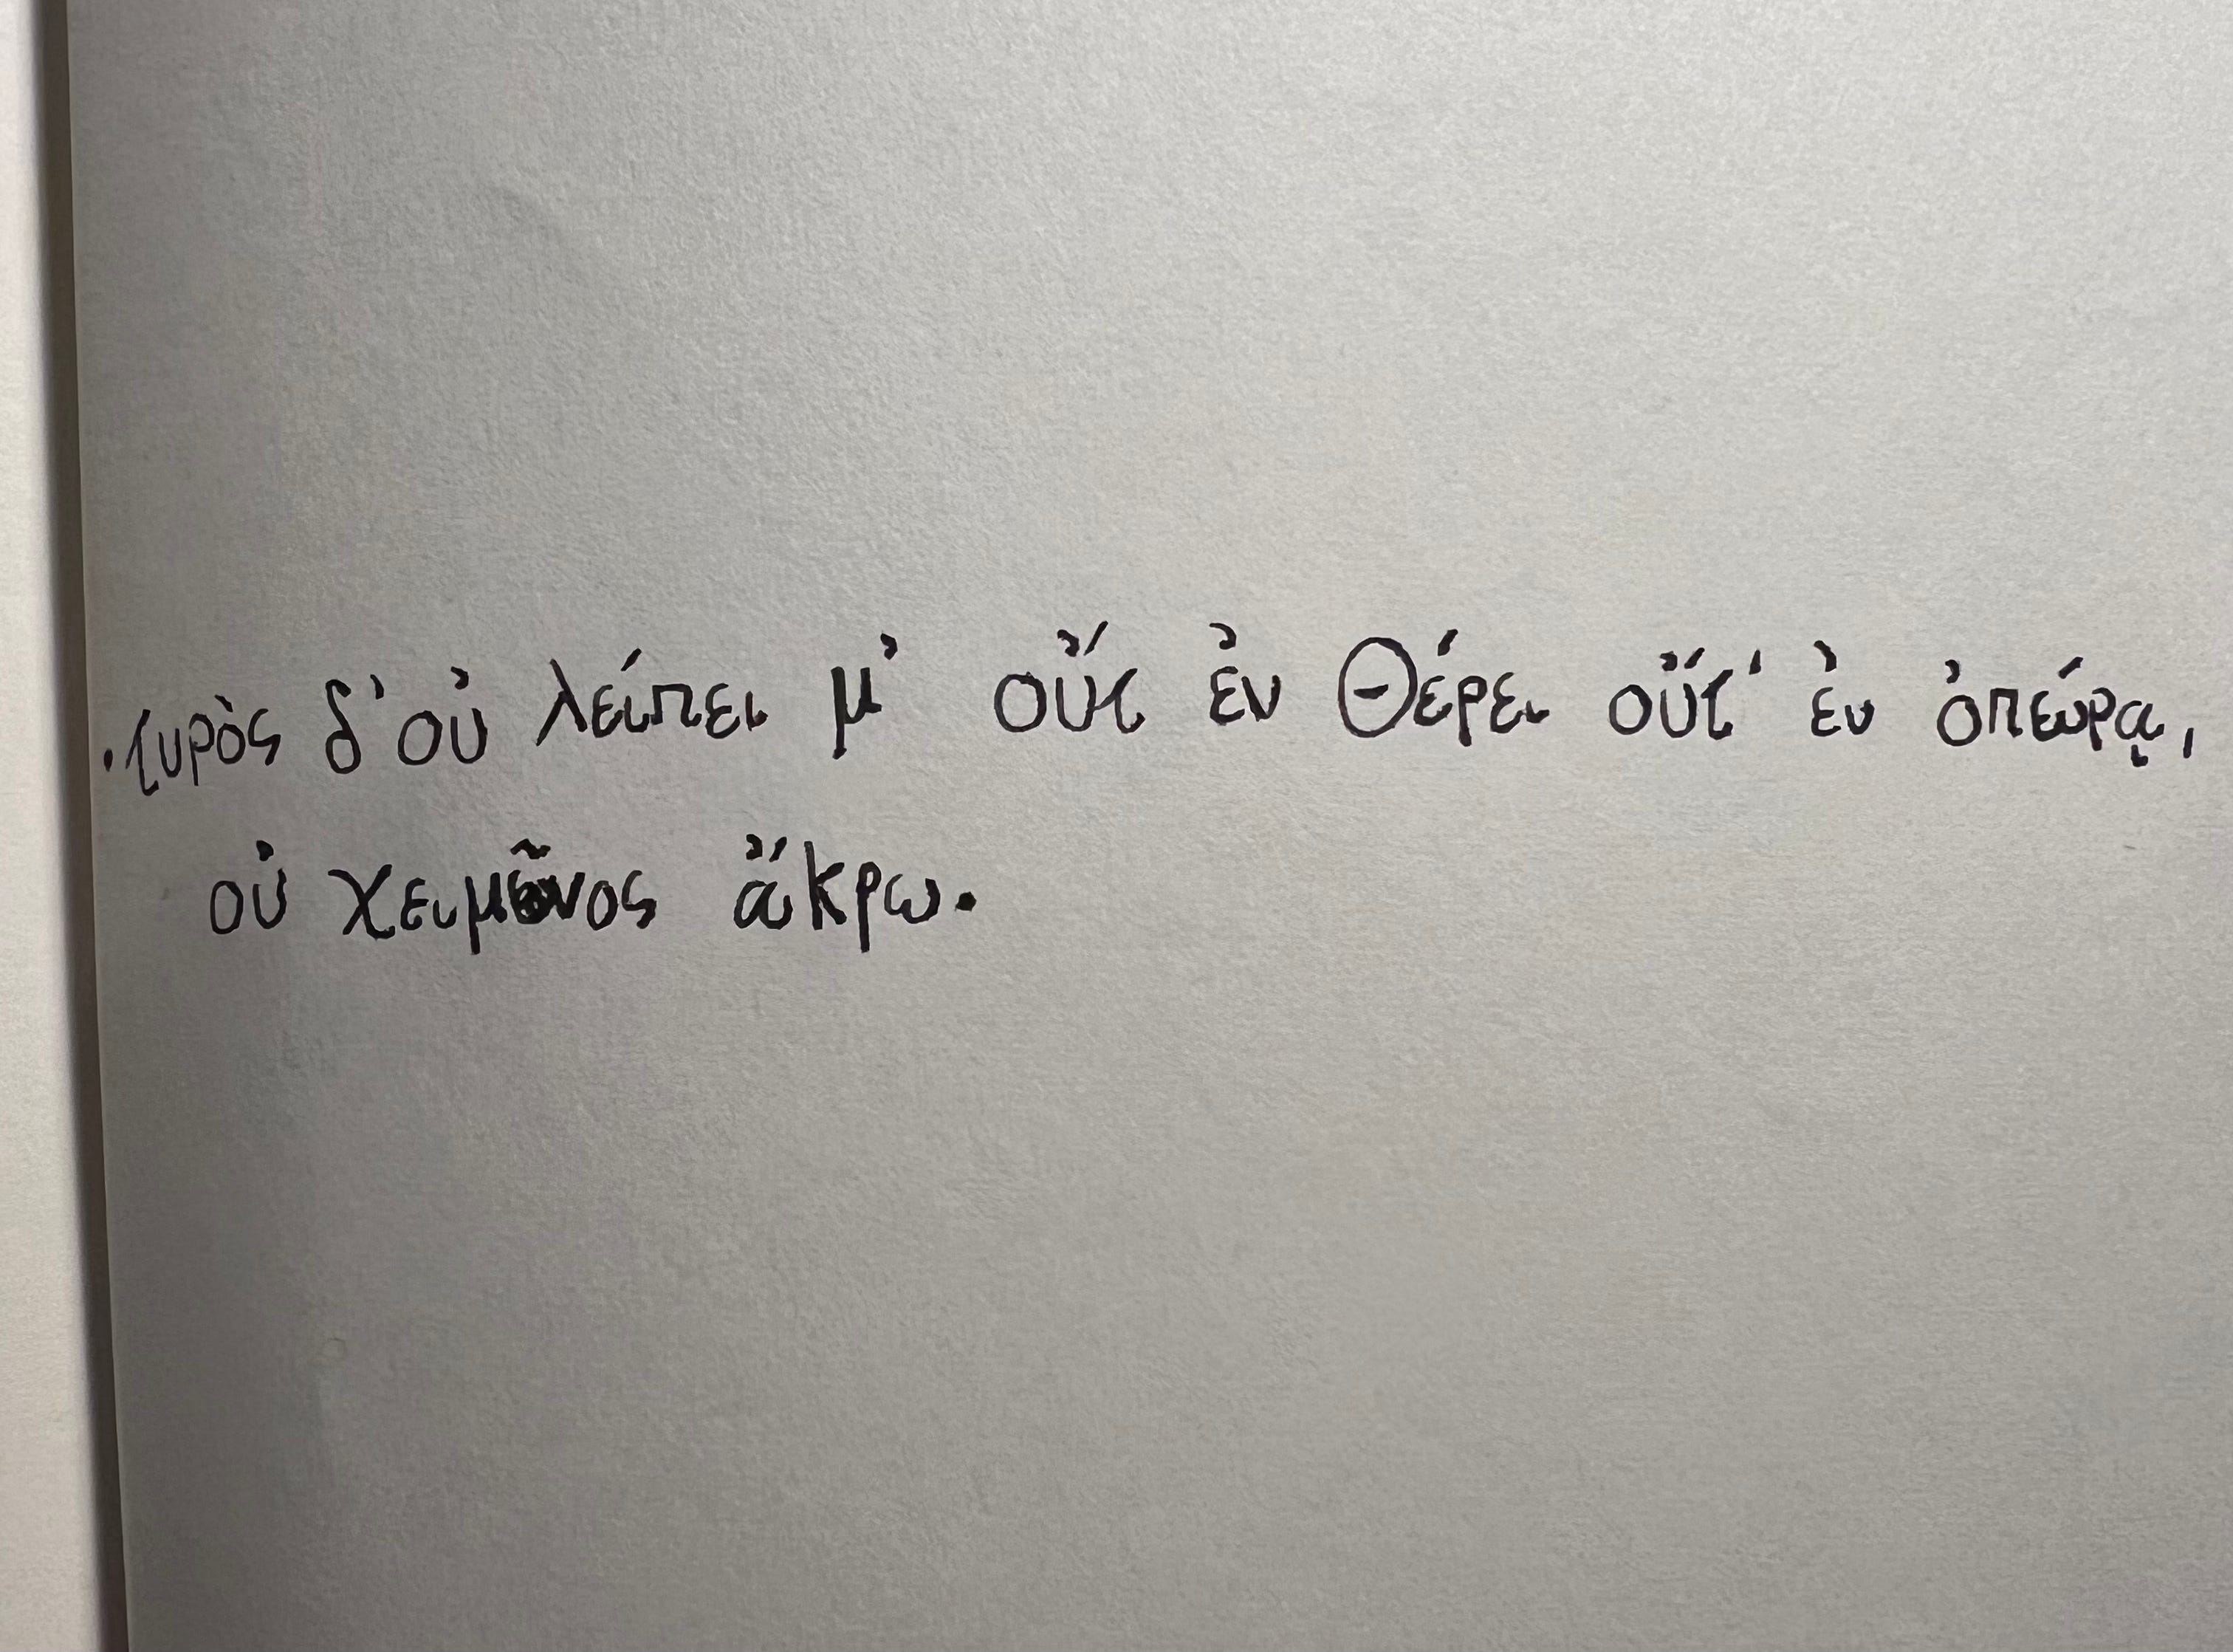 ·τυρὸς δ' οὐ λείπει μ' οὔτ ἐν Θέρει οὔτ' ἐν ὀπώρᾳ,
οὐ χειμῶνος ἄκρω.